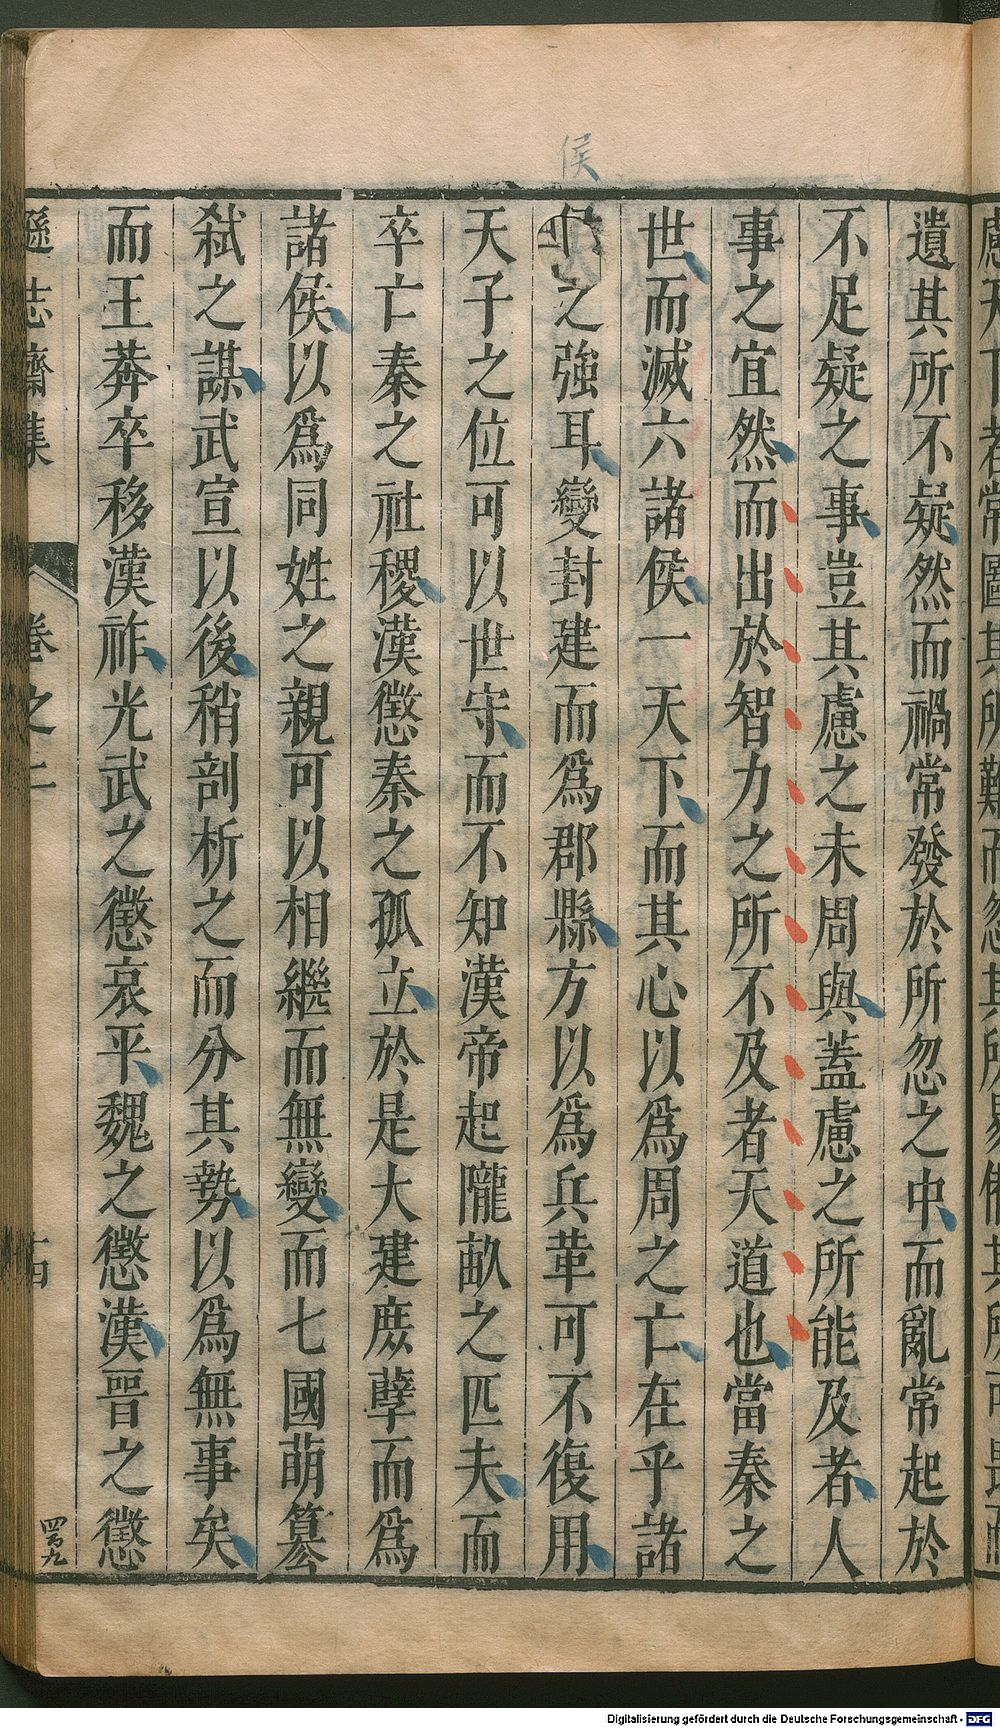 慮天下者常圖其所難而忽其所易備其所可畏而
遺其所不疑然而禍常發於所忽之中而亂常起於
不足疑之事豈其慮之未周與蓋慮之所能及者人
事之宜然而出於智力之所不及者天道也當秦之
世而滅六諸侯一天下而其心以爲周之亡在乎諸
侯
之強耳變封建而爲郡縣方以爲兵革可不復用
天子之位可以世守而不知漢帝起隴畝之匹夫而
卒亡秦之社稷漢懲秦之孤立於是大建庶孽而爲
諸侯以爲同姓之親可以相繼而無變而七國萌簒
弑之謀武宣以後稍剖析之而分其勢以爲無事矣
而王莽卒移漢祚光武之懲哀平魏之懲漢晉之懲
遜志齋集 卷之二 十四
四百九
Digitalisierung gefördert durch die Deutsche Forschungsgemeinschaft - DFG